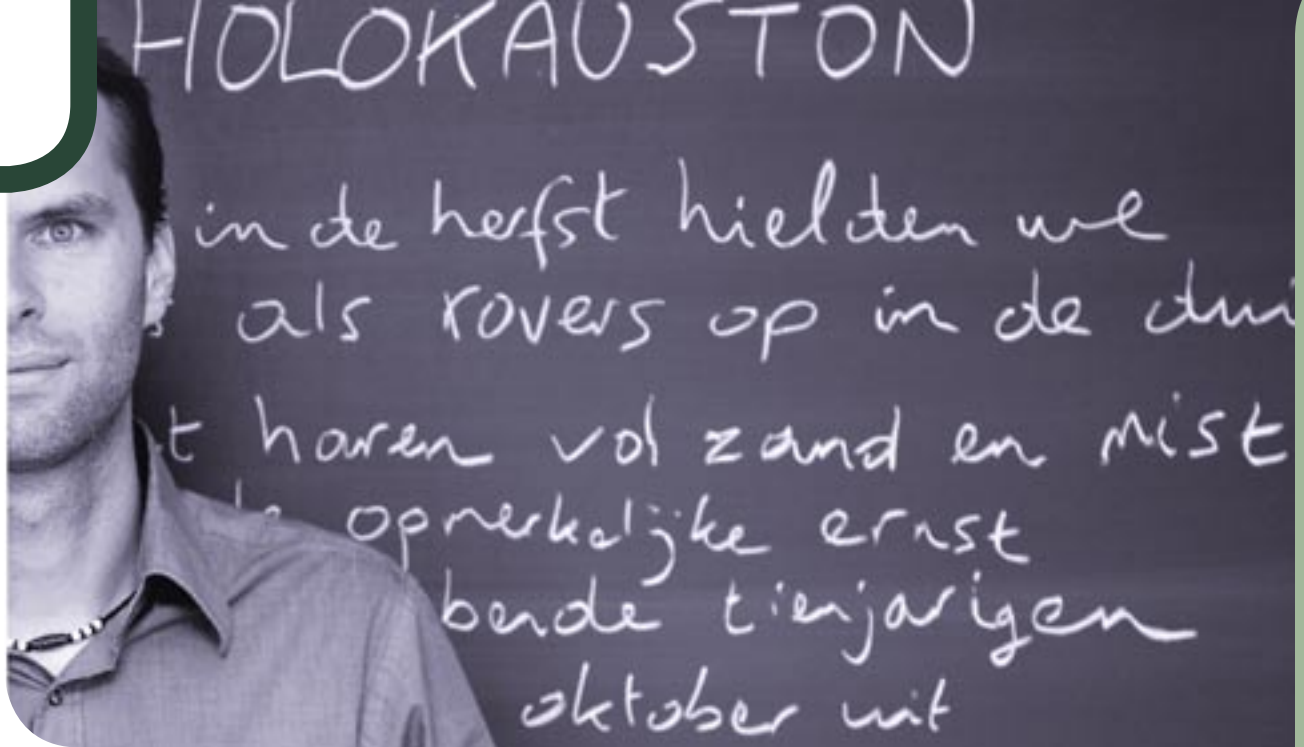 HOLOKAUSTON
in de herfst hielden we
als rovers op in de dui
haren vol zand en mist
opmerkelijke ernst
bende tienjarigen
oktober uit